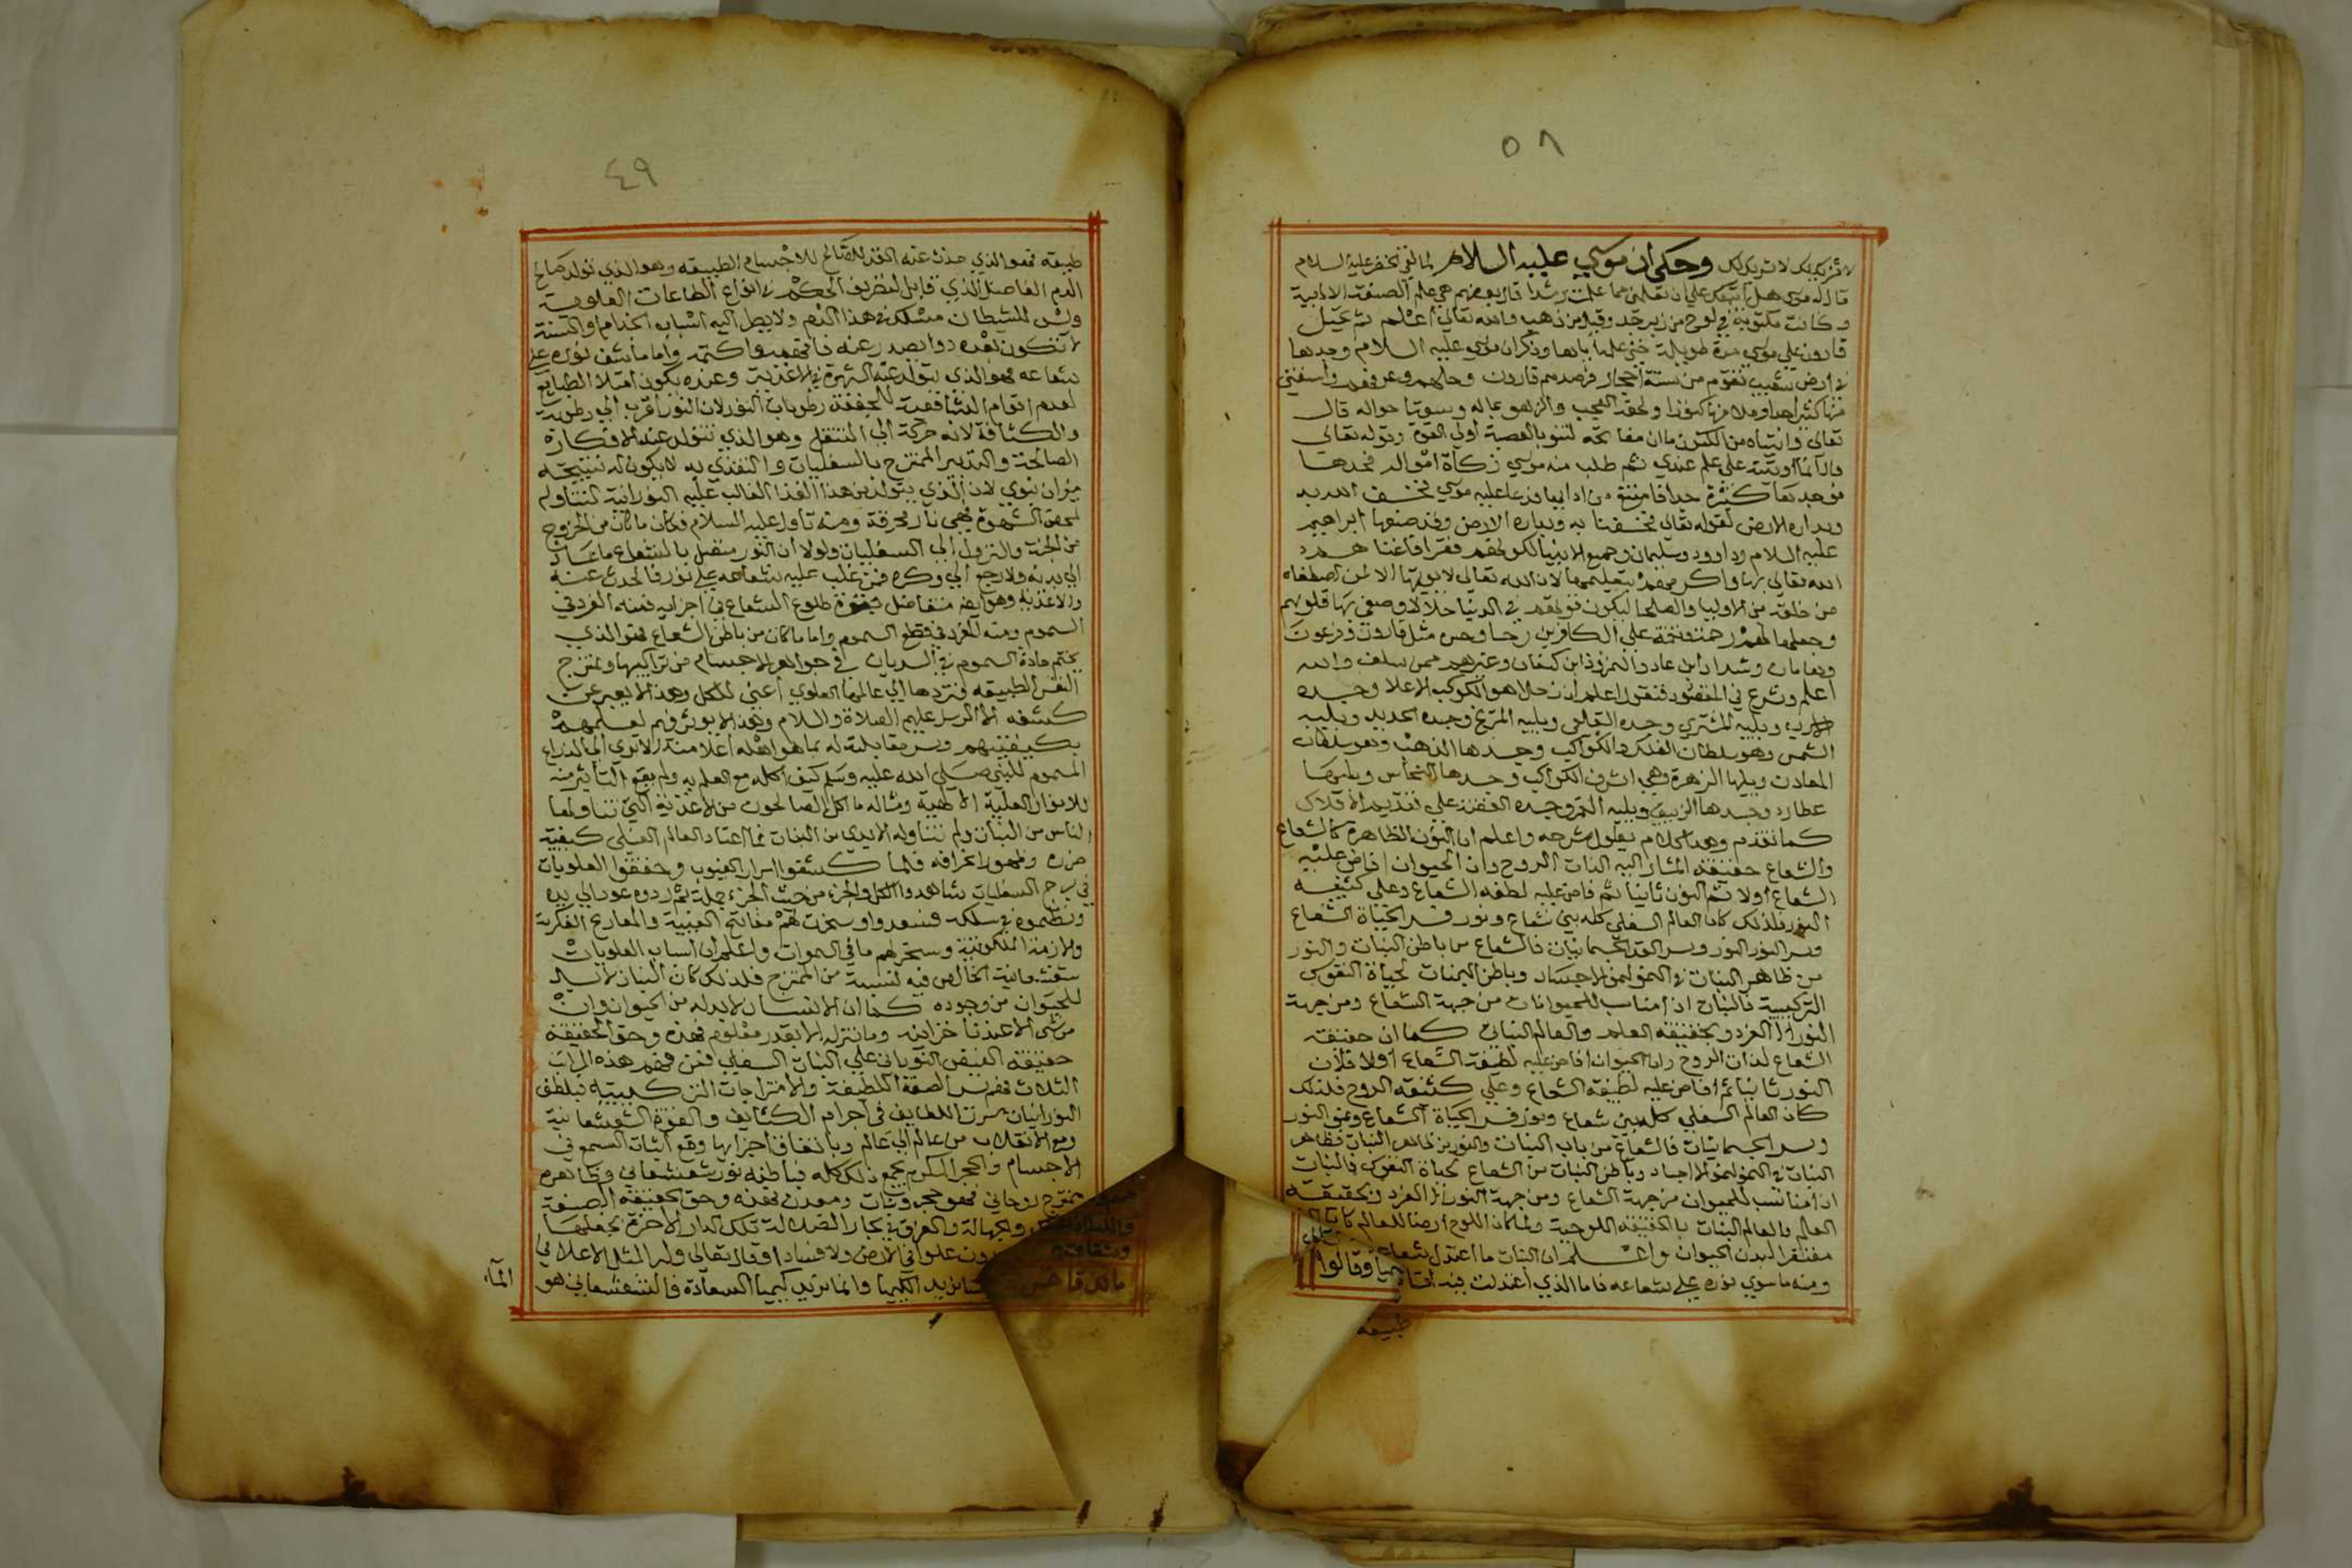 ٥٨
لا شريك لك لا شريك لك وحكي ان موسي عليه السلام لما لقي الخضر عليه السلام
قال له موسى هل اتبعك علي ان تعلمني مما علمت رشدا قال بعضهم هي علم الصنعة الالاهية
وكانت مكتوبة في لوح من زبرجد وقيل من ذهب والله تعالي اعلم ثم تحيل
قارون علي موسي مرة طويلة حتي علمه اياها وذكر ان موسي عليه السلام وجدها
في ارض شعيب تقوم من ستة احجار فرصدهم قارون وحلهم وعرفهم واستغني
منها كثيرا وملا منها كنوزا ولحقه العجب والزهو بماله وسوتا حواله قال
تعالي واتيناه من الكنوز ما ان مفاتحه لتنوء بالعصبة اولي القوة وقوله تعالي
قال انما اوتيته علي علم عندي ثم طلب منه موسي زكاة امواله فجحدها
فوجدها كثيرة جدا فامتنع من ادايها فدعا عليه موسي فخسف الله به
وبداره الارض لقوله تعالي فخسفنا به وبداره الارض وقد صنعها ابراهيم
عليه السلام وداوود وسليمان وجميع الانبيا لكونهم فقرا فاغناهم
الله تعالي بها واكرمهم بتعليمها لان الله تعالي لا يؤتها الا لمن اصطفاه
من خلقه من الاوليا والصلحا ليكون قوتهم في الدنيا حلالا وصفي بها قلوبهم
وجعلها لهم رحمة ونقمة علي الكافرين مثل قارون وفرعون
وهامان وشداد ابن عاد والنمروذ ابن كنعان وغيرهم ممن سلف والله
اعلم ونشرع في المقصود فنقول اعلم ان زحلا هو الكوكب الاعلا وجسده
ويليه المشتري وجسده القلعي ويليه المريخ وجسده الحديد ويليه
الشمس وهو سلطان الفلك والكواكب وجسدها الذهب وهو سلطان
المعادن ويليها الزهرة وهي اشرف الكواكب وجسدها النحاس ويليها
عطارد وجسدها الزيبق ويليه القمر وجسده الفضة علي تقدير الافلاك
كما تقدم وهذا كلام يطول شرحه واعلم ان النور الظاهره كالشعاع
والشعاع حقيقته المشار اليه الذات الروح وان الحيوان افاض عليه
الشعاع اولا ثم النور ثانيا ثم فاض عليه لطفه الشعاع وعلي كثيفه
النور فلذلك كان العالم السفلي كله بين شعاع ونور الحياة الشعاع
وسر النور النور وسر الجسمانيات فالشعاع من باطن النبات والنور
من ظاهر النبات في النمو لنمو الاجساد وباطن النبات لحياة النفوس
التركيبية فالنبات اذا مناسب للحيوانات من جهة الشعاع ومن جهة
النور المفرد وبحقيقة العلم والعالم النباتي كما ان حقيقة
الشعاع لذات الروح وان الحيوان افاض عليه لطيفة الشعاع اولا فلان
النور ثانيا ثم افاض عليه لطيفة الشعاع وعلي كثيفه الروح فلذلك
كان العالم السفلي كله بين شعاع ونور الحياة الشعاع ونمو النور
وسر الجسمانيات فالشعاع من باب النبات والنور من ظاهر النبات فظاهر
النبات في النمو لنمو الاجساد وباطن النبات من الشعاع لحياة النفوس فالنبات
اذا مناسب للحيوان من جهة الشعاع ومن جهة النور المفرد وبحقيقة
العالم والعالم النبات بالحقيقة اللوحية ولما كان اللوح ارضا للعالم
مفتقر البدن الحيوان واعلم ان النبات ما اعتدل شعاعه
ومنه ما سوي نوره علي شعاعه فاما الذي اعتدلت فيه
وقالوا
طبيعة
٤٩
طبيعته فهو الذي حدث عنه الغذا الصالح للاجسام الطبيعه وهو الذي تولد صالح
الدم الفاضل الذي قابل لتصريف الحكم في انواع الطاعات العلوية
وليس للشيطان مسلك في هذا الدم ولا يصل اليه اسباب الجذام والسنة
لا تكون لهذه دوا يصدر عنه فافهم واكتم واما ما شف نوره علي
شعاعه فهو الذي يتولد عنه الشهوة في الاغذية وعنده يكون امتلا الطبايع
لعدم اقوام الشافعة لخفقة رطوبات النور لان النور اقرب الي رطوبة
والكثافة لانه حركة الي التنقل وهو الذي تتولد عنه الافكار
الصالحة والتدبير الممتزج بالسفليات والتغذي به لا يكون له نتيجة
ميزان نبوي لان الذي يتولد من هذا الغذا الغالب عليه النورانية لتناوله
لمحض الشهوة فهي نار محرقة ومنه تناول عليه السلام فكان ما كان من الخروج
من الجنة والنزول الي السفليات ولولا ان النور متصل بالشعاع ما عاد
الي بدنه ولا رجع الي وكره فمن غلب عليه شعاعه علي نوره فالحدث عنه
والاغذية وهو ايضا متفاضل فبقوة طلوع الشعاع في اجزايه فمنه المفرد في
السموم ومنه المفرد في قطع السموم واما ما كان من باطن الشعاع فهو الذي
يختم مادة السموم في السريان في جواهر الاجسام من تراكيبها وتمتزج
النفس الطبيعه فتردها الي عالمها العلوي اعني للكل وهذا لا يعبر عن
كشفه الا الرسل عليهم الصلاة والسلام وهذا لا يوثر فيهم لعلمهم
بكيفيتهم وسر مقابلته له بما هو اهله اعلا منه الا تري الي الذراع
المسموم للنبي صلى الله عليه وسلم كيف اكله مع العلم به ولم يقع التاثير منه
للانوار العلية الالهية ومثاله ما اكل الصالحون من الاغذية التي تناولها
الناس من النبات ولم تتناوله الايدي من النبات مما اعتاد العالم السفلي كيفية
ضرره وظهور انحرافه فلما كشفوا اسرار الغيوب وحققوا العلويات
في برج السفليات شاهدوا الكل والجزء من حيث الجزء جملة ثم ردوه عودا الي بدء
ونظموه في سلكه فسعدوا وسخرت لهم مفاتح الغيبية والمعارج الفكرية
والازمنة الملكوتية وسخر لهم ما في السموات واعلم ان اسباب العلويات
الخالص فيه لنسبة من الممتزج فلذلك كان النبات لا بد
للحيوان من وجوده كما ان الانسان لا بد له من الحيوان وان
من شي الا عندنا خزاينه وما ننزله الا بقدر معلوم فهذه وحق الحقيقة
حقيقة الفيض النوراني علي النبات السفلي فمن فهم هذه المراتب
الثلاث فهم سر الصنعة اللطيفة والامتزاجات التركيبية فبلطف
النورانيات سرت اللطايف في اجرام الكثايف والقوة الشعشعانية
ومع الانقلاب من عالم الي عالم وباتفاق اجزايها وقع اثبات السمع في
الاجسام والحجر المكرم يجمع ذلك كله فباطنه نور شعشعاني وظاهره
ممتزج روحاني فهو حجر ونبات ومعدن فهذه وحق الحقيقة الصنعة
والجهالة والغرق في بحار الضلالة تلك الدار الاخرة نجعلها
علوا في الارض ولا فسادا وقال تعالي وله المثل الاعلا في
نريد الكيميا وانما نريد كيميا السعادة فالشعشعاني هو
الماء